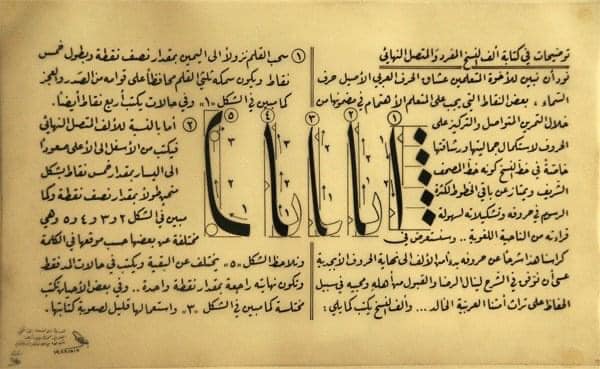 توضيحات في كتابة ألف النسخ المفرد والمتصل النهائي
نود أن نبين للأخوة المتعلمين عشاق الحرف العربي الأصيل حرف
السماء، بعض النقاط التي يجب على المتعلم الاهتمام في مضمونها من
خلال التمرين المتواصل والتركيز على
الحروف لاستكمال جماليتها ورشاقتها
خاصةً في خط النسخ كونه خط المصحف
الشريف ويمتاز عن باقي الخطوط لكثرة
الرسوم في حروفه وتشكيلاته لسهولة
قراءته من الناحية اللغوية .. وسنستعرض في
كراسنا هذا شرحاً عن حروفه بدءاً من الألف إلى نهاية الحروف الأبجدية
عسى أن نوفق في الشرح لينال الرضا والقبول من أهله ومحبيه في سبيل
الحفاظ على تراث أمتنا العربية الخالد ... وألف النسخ يكتب كما يلي:
١ سحب القلم نزولاً إلى اليمين بمقدار نصف نقطة وبطول خمس
نقاط ويكون سمكه ثلثي القلم محافظاً على قوامه من الصدر والعجز
كما مبين في الشكل «١» وفي حالات يكتب أربع نقاط أيضاً.
٢ أما بالنسبة للألف المتصل النهائي
فيكتب من الأسفل إلى الأعلى صعوداً
إلى اليسار بمقدار خمس نقاط بشكل
منحنٍ طولاً بمقدار نصف نقطة وكما
مبين في الشكل ٢ و ٣ و ٤ و ٥ وهي
مختلفة عن بعضها حسب موقعها في الكلمة
ونلاحظ الشكل «٥» يختلف عن البقية ويكتب في حالات المد فقط
وتكون نهايته راجعة بمقدار نقطة واحدة .. وفي بعض الأحيان تكتب
مختلسة كما مبين في الشكل «٣» واستعمالها قليل لصعوبة كتابتها.
١ ٢ ٣ ٤ ٥